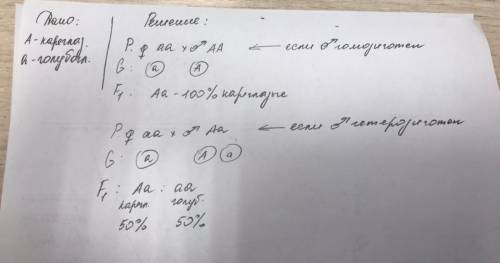 Дано:
А - кареглаз.
а - голубогл.
Решение:
P. ♀ аа × ♂ АА ← если ♂ гомозиготен
G: а А
F₁: Аа - 100% кареглазые
P ♀ аа × ♂ Аа ← если ♂ гетерозиготен
G: а А а
F₁: Аа : аа
карегл. голуб.
50% 50%